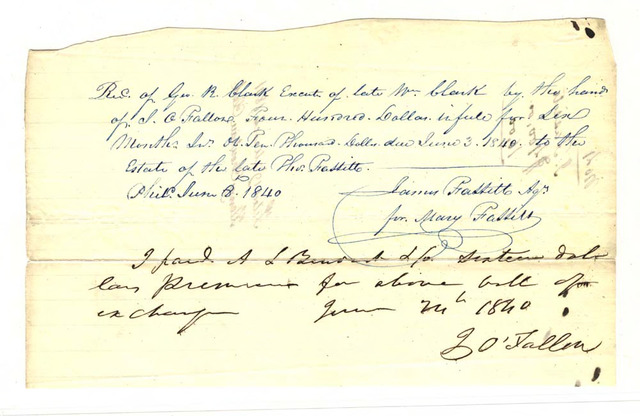 Rec. of Geo. R. Clark Execut. of late Wm. Clark by the hand
of J. O Fallon Four Hundred Dollars in full for Six
Months Int. on Ten Thousand Dolls. due June 3. 1840. to the
Estate of the late Tho. Fassitt.
Phil. June 8. 1840
James Fassitt Agt
for Mary Fassitt
I paid A L Benoist & Co sixteen dol-
lars premium for above bill of
exchange June 24th 1840
J O'Fallon